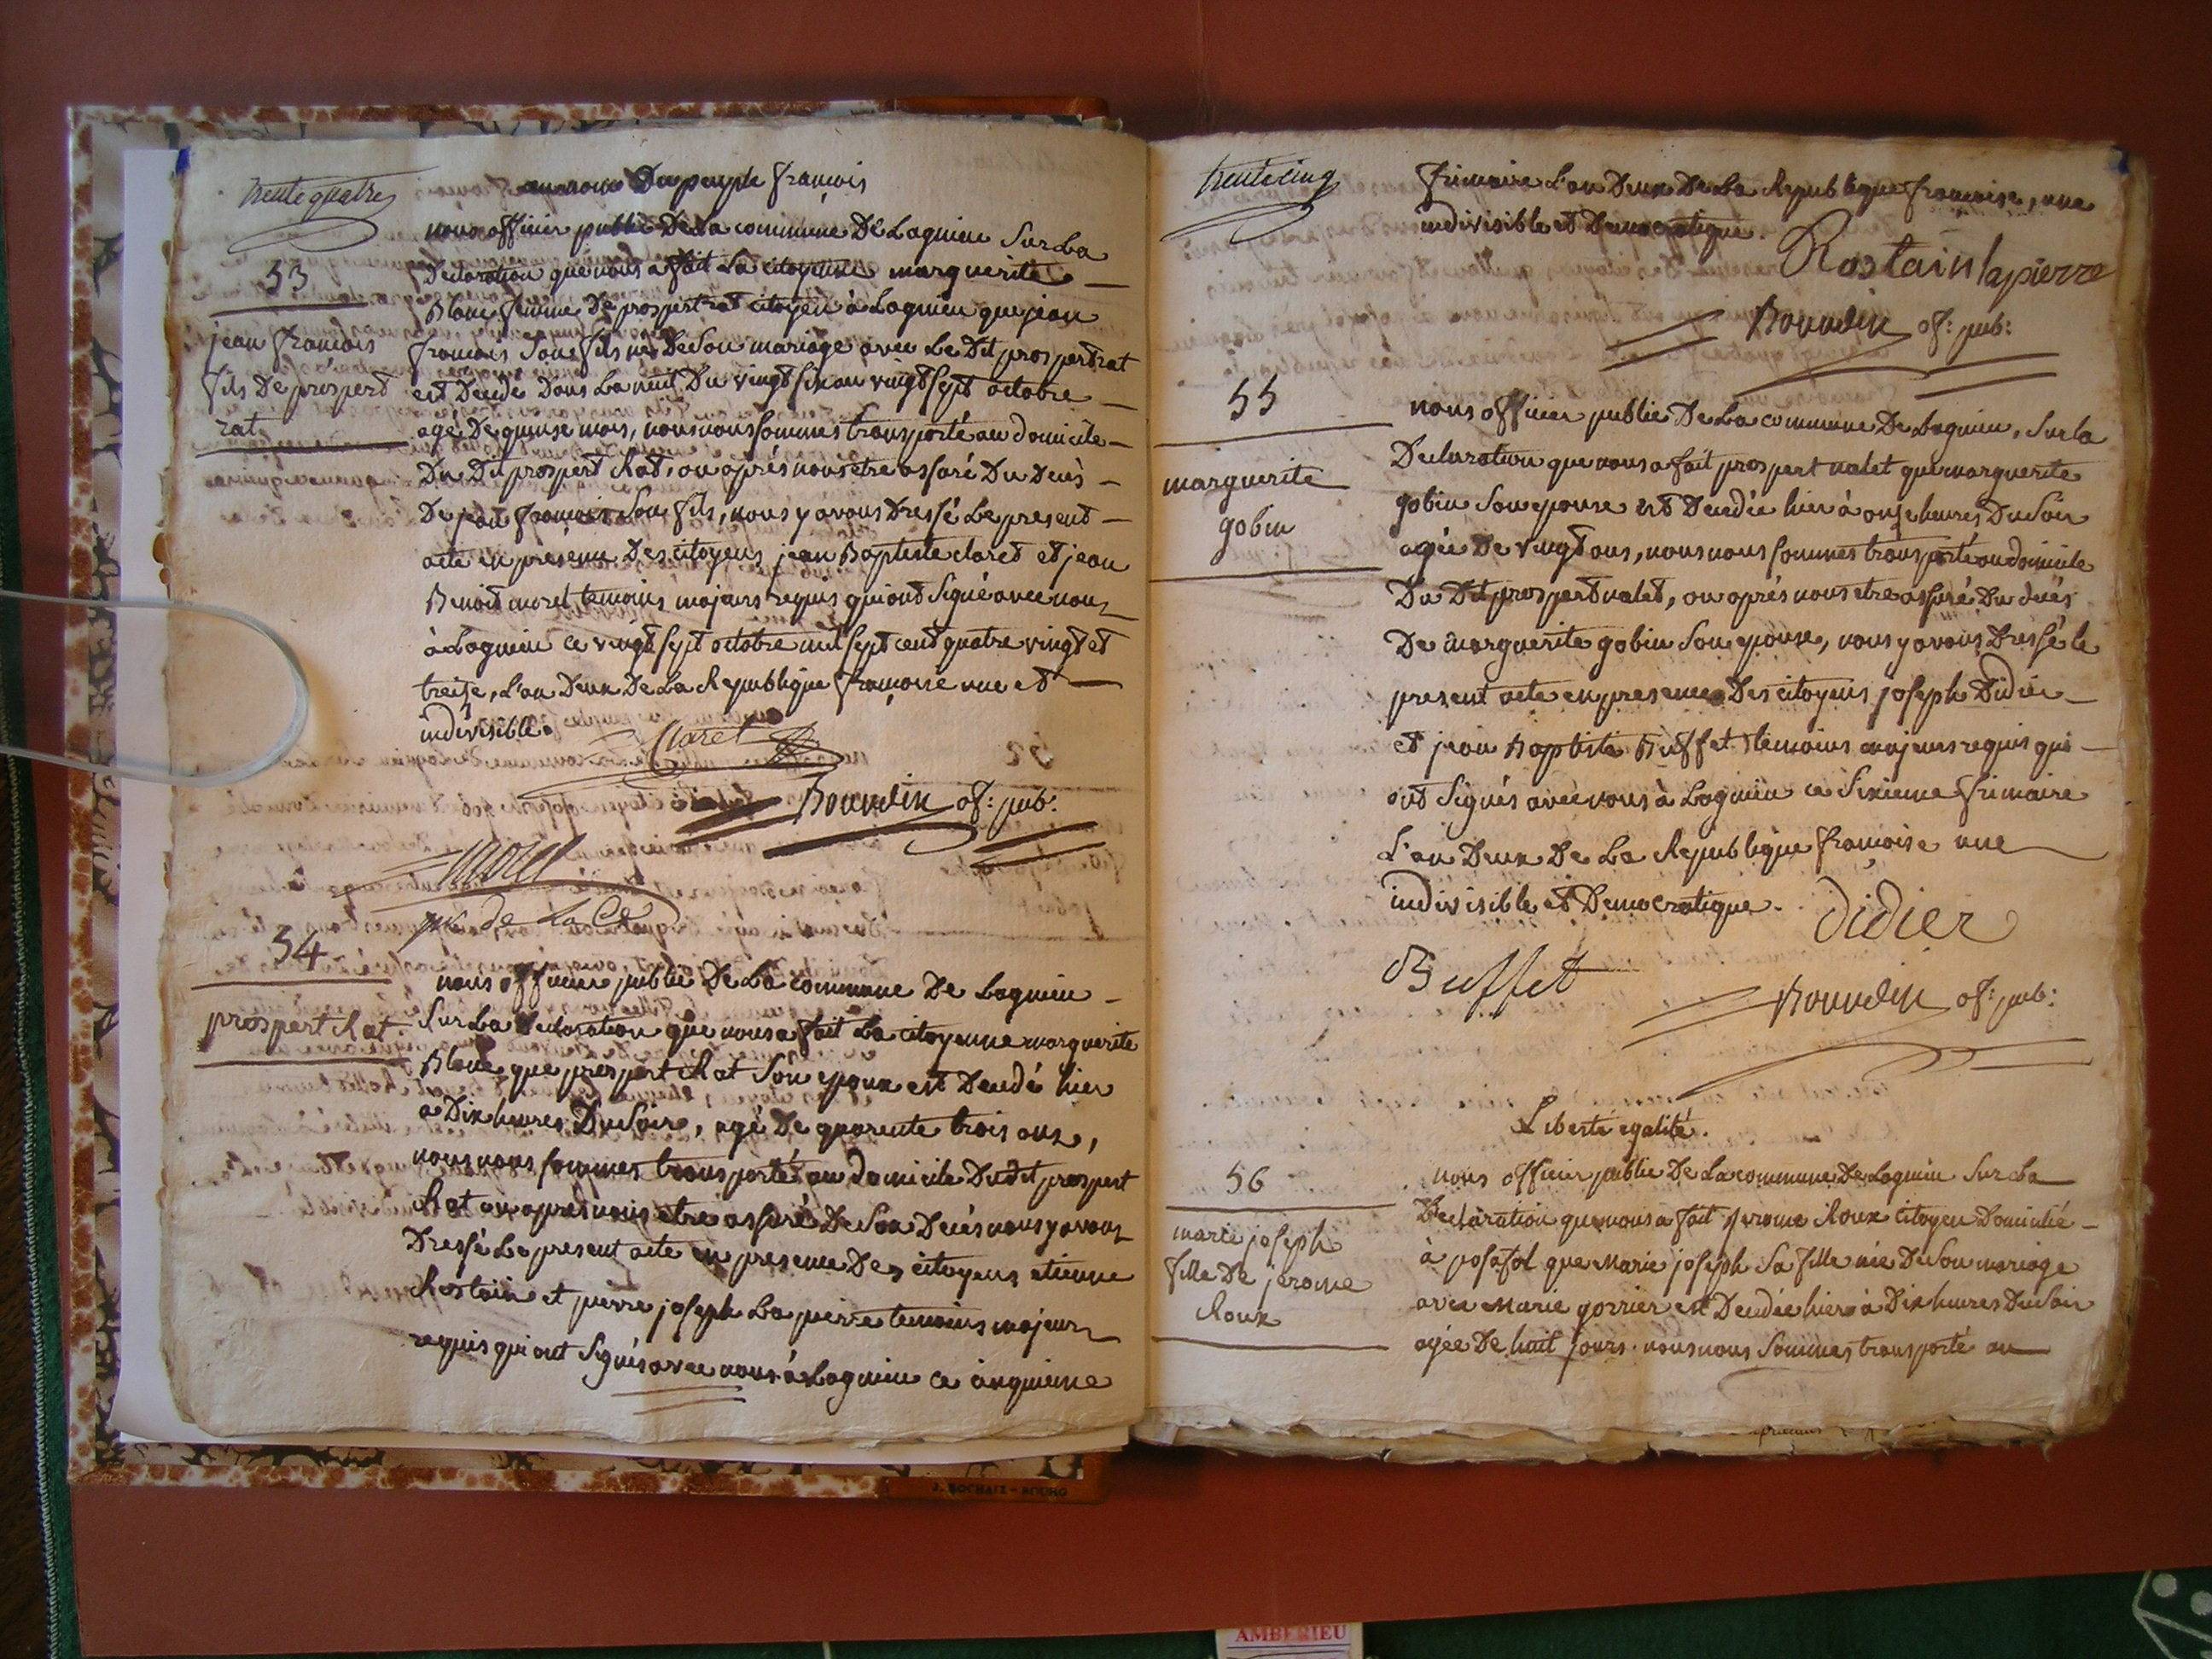 trente quatre
au nom Du peuple francois
nous officier public De La commune De Lagnieu Sur La
53
Declaration que nous a fait La citoyenne marguerite
Blanc femme De prospert rat citoyen à Lagnieu que jean
jean francois
fils De prospert
rat
francois Son fils né De Son mariage avec Le Dit prospert rat
est Decedé Dans La nuit Du vingt six au vingt Sept octobre
agé De quinse mois, nous nous Sommes transporté au domicile
Du Dit prospert Rat, ou aprés nous etre assuré Du Decès
De jean francois Son fils, nous y avons Dressé Le present
acte en presence Des citoyens jean Baptiste claret et jean
Benoit morel temoins majeurs requis qui ont Signé avec nous
à Lagnieu ce vingt Sept octobre mil Sept cent quatre vingt et
treize, L'an Deux De La Republique francoise une et
indivisible.
Claret
Bouvdin of: pub:
morel
de La Ce
54
nous officier public De La commune De Lagnieu
prospert Rat.
Sur La Declaration que nous a fait La citoyenne marguerite
Blanc que prospert Rat Son epoux est Decedé hier
a Dix heures Du Soir, agé De quarente trois ans,
nous nous Sommes transporté au domicile Du dit prospert
Rat ou aprés nous etre assuré De Son Decés nous y avons
Dressé Le present acte en presence Des citoyens etienne
Rostain et pierre joseph La pierre temoins majeurs
requis qui ont Signés avec nous à Lagnieu ce cinquieme
trente cinq
frimaire L'an Deux De La Republique francoise, une
indivisible et Democratique.
Rostain lapierre
Bouvdin of: pub:
55
nous officier public De La commune De Lagnieu, Sur la
Declaration que nous a fait prospert valet que marguerite
marguerite
gobin
gobin Son epouse est Decedée hier à onze heures Du Soir
agée De vingt ans, nous nous Sommes transporté au domicile
Du Dit prospert valet, ou aprés nous etre assuré Du decés
De marguerite gobin Son epouse, nous y avons Dressé le
present acte en presence Des citoyens joseph Didier
et jean Baptiste Buffet temoins majeurs requis qui
ont Signés avec nous à Lagnieu ce Sixieme frimaire
L'an Deux De La Republique francoise une
indivisible et Democratique.
Didier
Buffet
Bouvdin of: pub:
Liberté egalité.
56
nous officier public De La commune De Lagnieu Sur La
Declaration que nous a fait jerome Roux citoyen Domicilié
marie joseph
fille De jerome
Roux
à posafol que Marie joseph Sa fille née De Son mariage
avec Marie gorrier est Decedée hier à Dix heures Du Soir
agée De huit jours. nous nous Sommes transporté au
J. ROCHAIX - BOURG
AMBERIEU